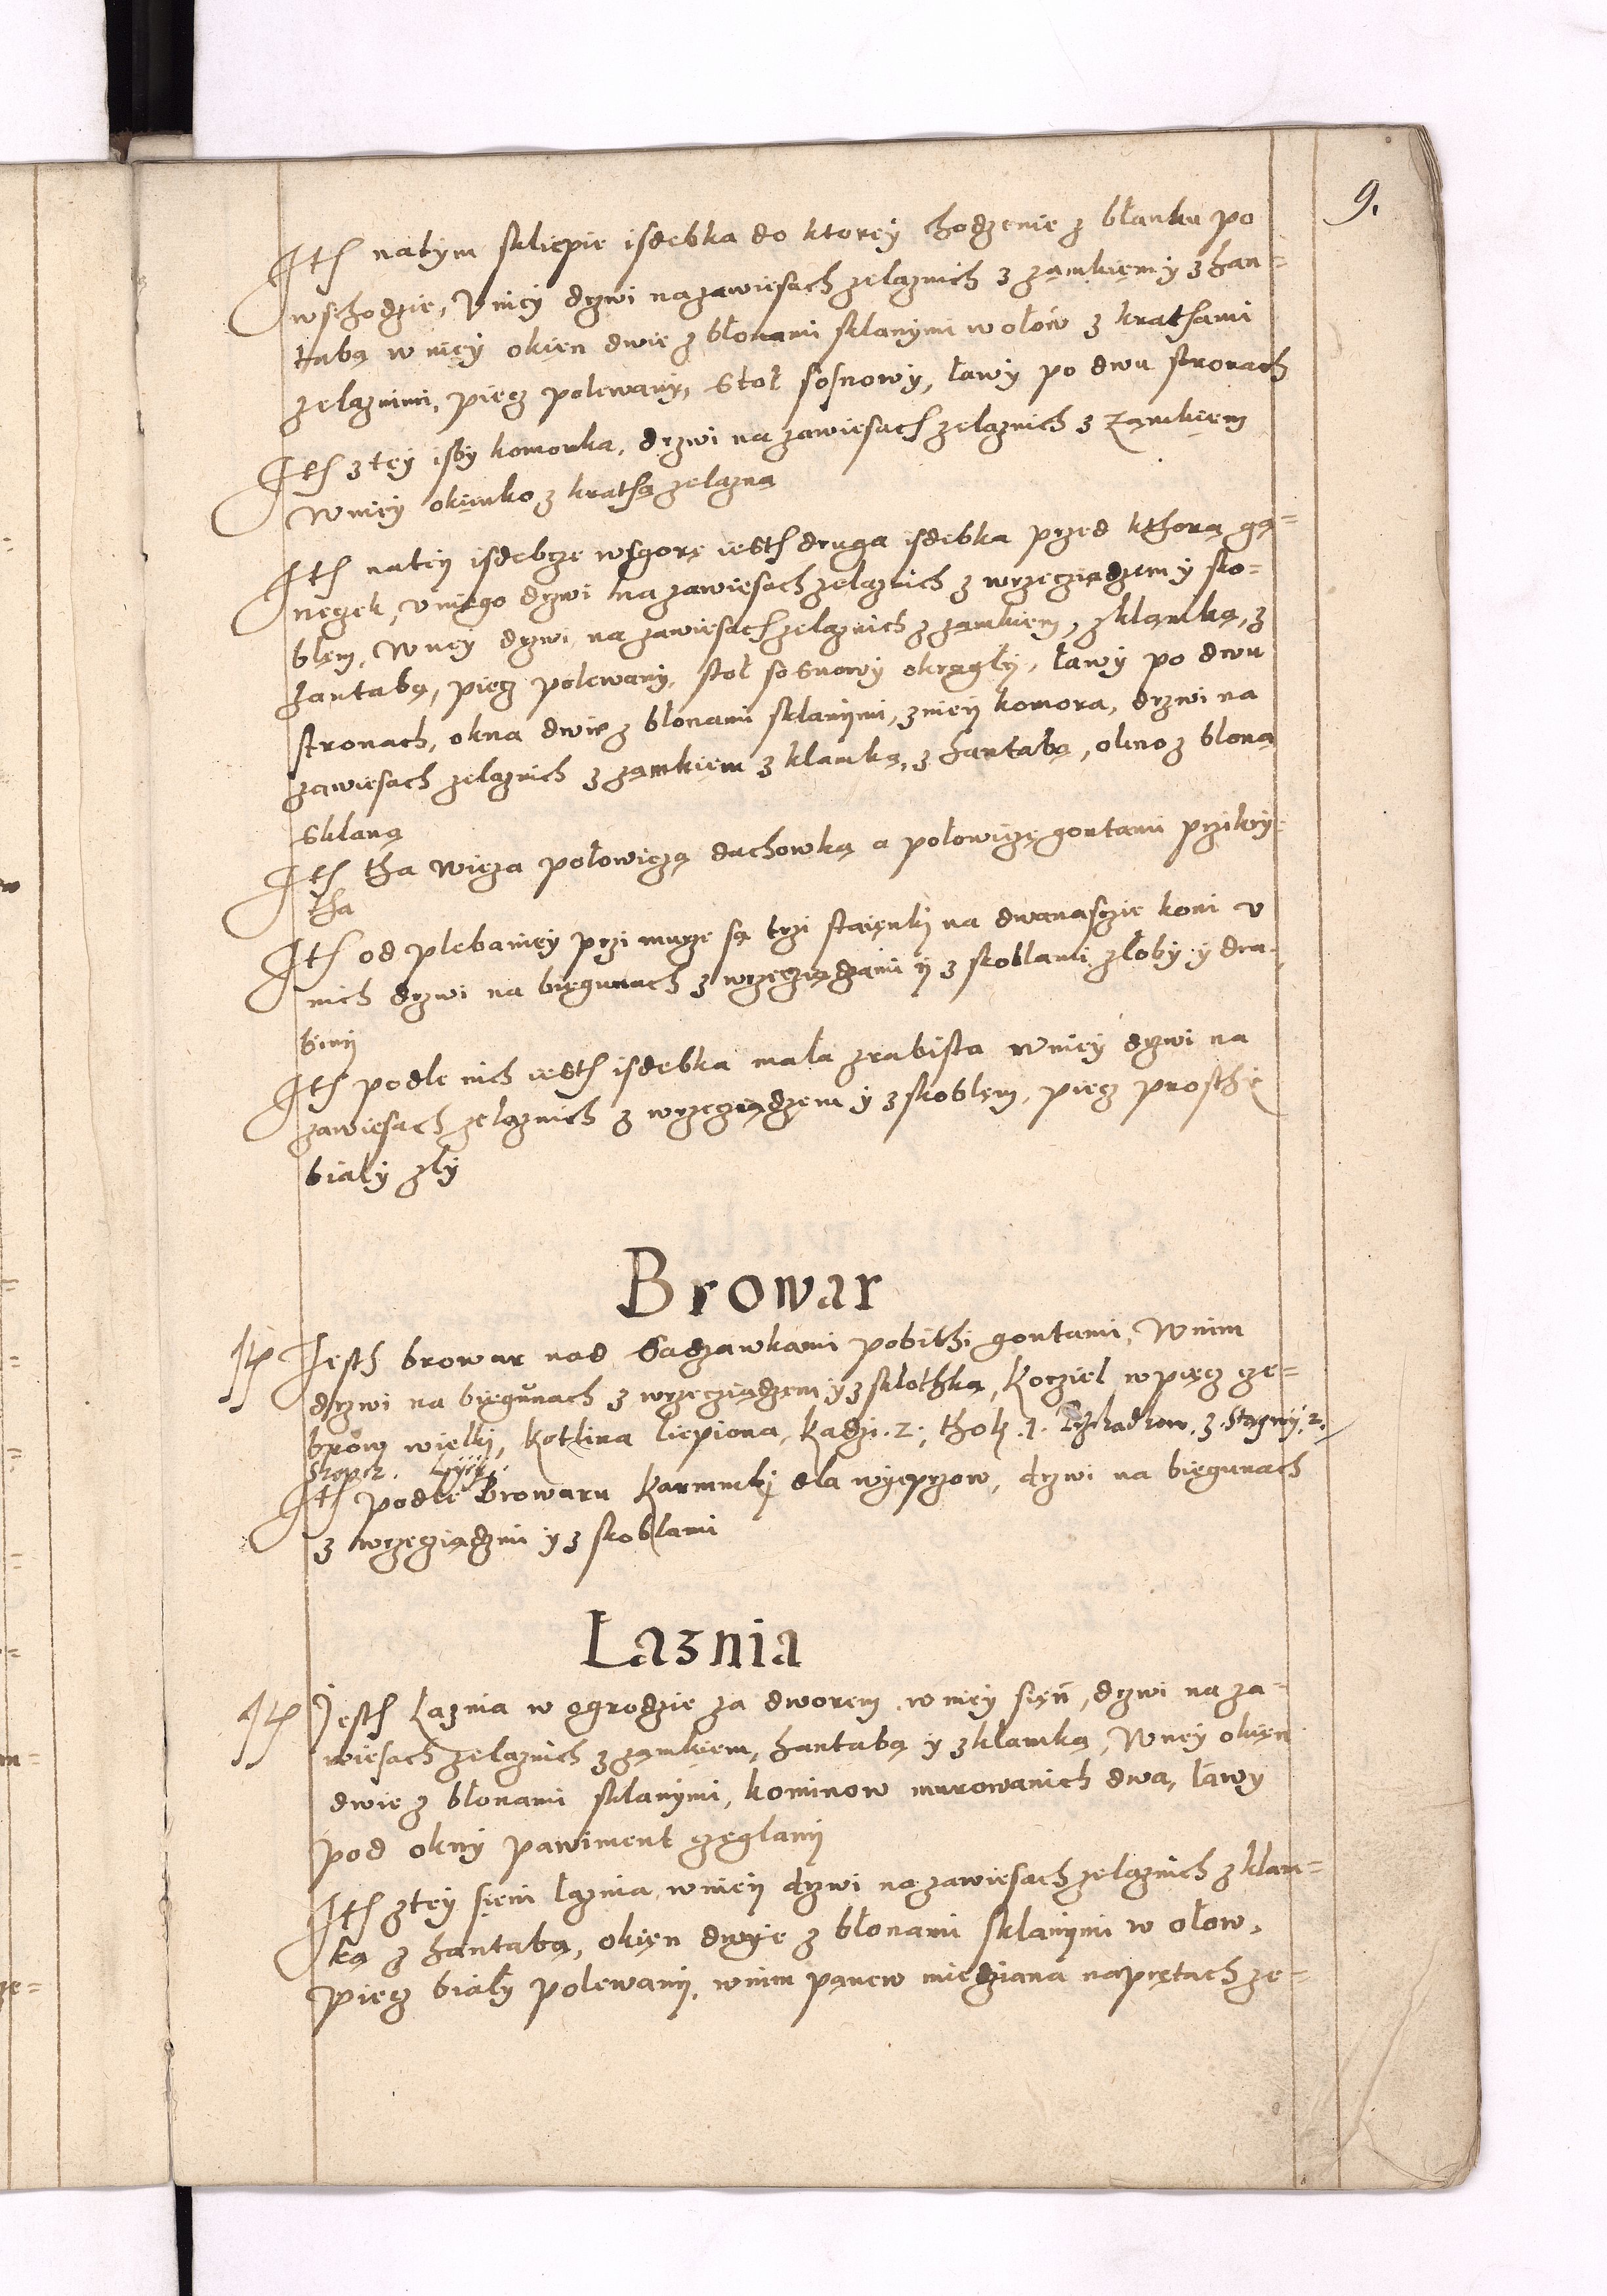 9.
Ith natym skliepie isdebka do ktorey chodzenie z blanku po
wschodzie, V niey drzwi na zawiesach zelaznich z zamkiem y z han=
tabą w niey okien dwie z błonami sklanymi w ołow z krathami
zelaznimi, piecz polewany, Stoł sosnowy, ławy po dwu stronach
Ith z tey isby komorka, drzwi na zawiesach zelaznich z zamkiem
W niey okienko z krathą zelazną
Ith na tey isdebcze wsgorę iesth druga isdebka przed kthorą ga=
neczek, v niego drzwi na zawiesach zelaznich z wrzecziądzem y sko=
blem, W niey drzwi na zawiesach zelaznich z zamkiem, z klamką, z
hantabą, piecz polewany, stoł sosnowy okrągły, ławy po dwu
stronach, okna dwie z błonami sklanymi, z niey komora, drzwi na
zawiesach zelaznich z zamkiem z klamką, z hantabą, okno z bloną
sklaną
Ith tha wieza połowiczą dachowką a połowiczę gontami przikry=
tha
Ith od plebaniey przi murze są trzi staienki na dwanasczie koni v
nich drzwi na biegunach z wrzecziądzami y z skoblami złoby y dra=
biny
Ith podle nich iesth isdebka mała zrabista w niey drzwi na
zawiesach zelaznich z wrzecziądzem y z skoblem, piecz prosthy
biały zły
Browar
Ith Jesth browar nad Sadzawkami pobithi gontami, W nim
drzwi na biegunach z wrzecziądzem y z kłothką, Kocziel w piecz cze=
brow wielki, Kotlina liepiona, Kadzi .2., thok .1. . 3. Stągwy .2.
Ith podle Browaru Karmniki dla wyeprzow, drzwi na biegunach
z wrzecziądzmi y z skoblami
Łaznia
Ith Jesth Łaznia w ogrodzie za dworem w niey sień, drzwi na za=
wiesach zelaznich z zamkiem, hantabą y z klamką, W niey okien
dwie z błonami sklanymi, kominow murowanich dwa, ławy
pod okny pawiment czeglany
Ith z tey sieni łaznia, w niey drzwi na zawiesach zelaznich z klam=
ką z hantabą, okien dwye z błonami sklanymi w ołow,
piecz biały polewany, w nim panew miedziana na prętach ze=